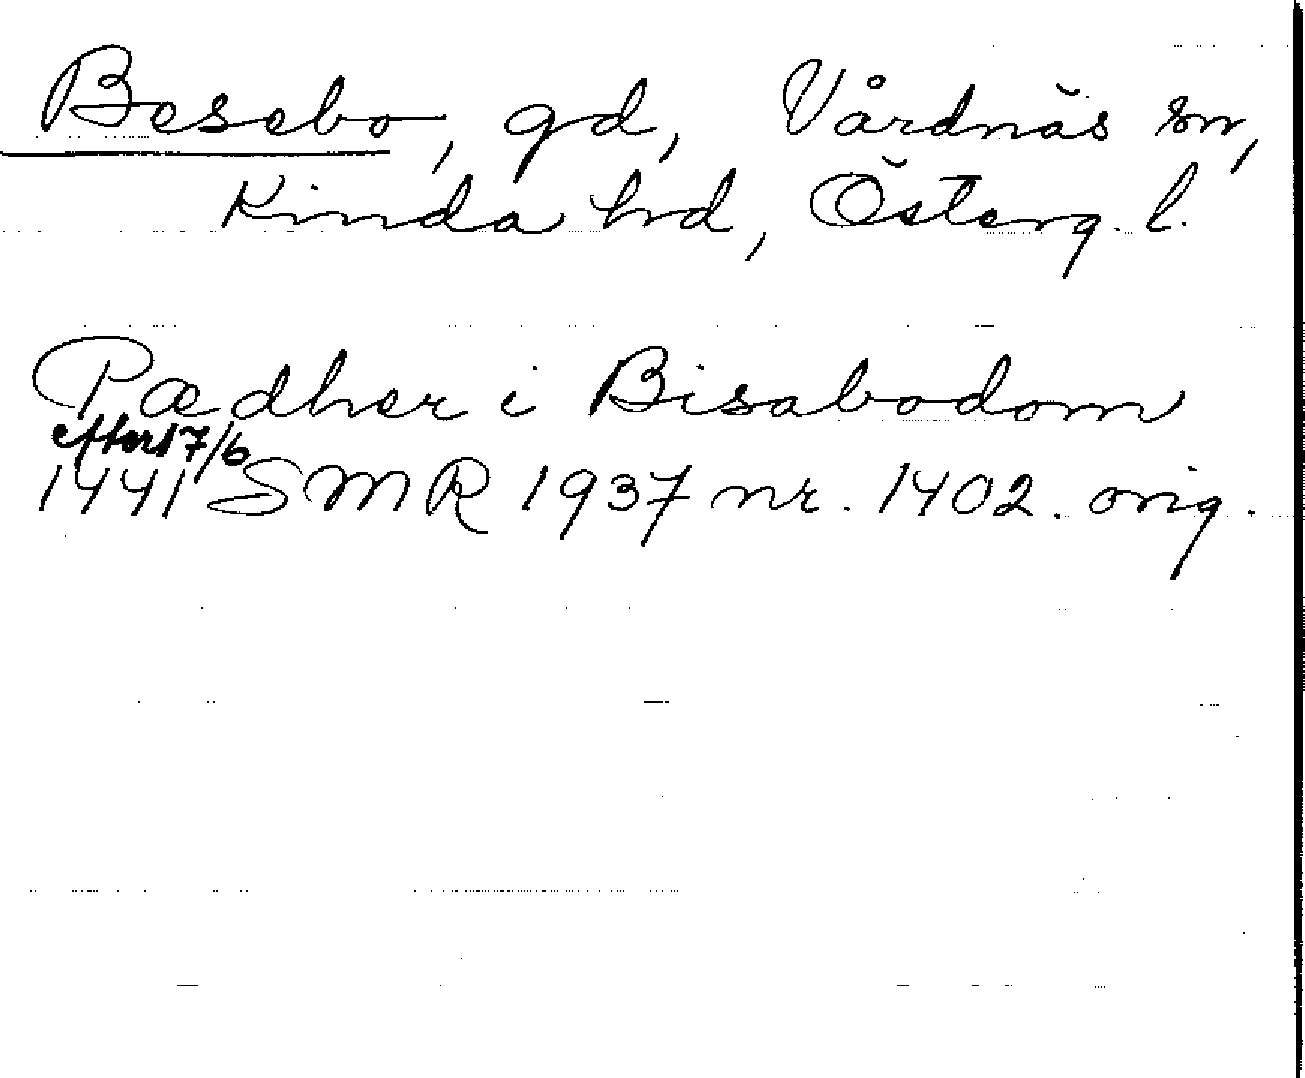 Besebo, gd, Vårdnäs sn,
Kinda hd, Österg. l.
Pædher i Bisabodom
efter 17/6
1441 SMR 1937 nr. 1402. orig.